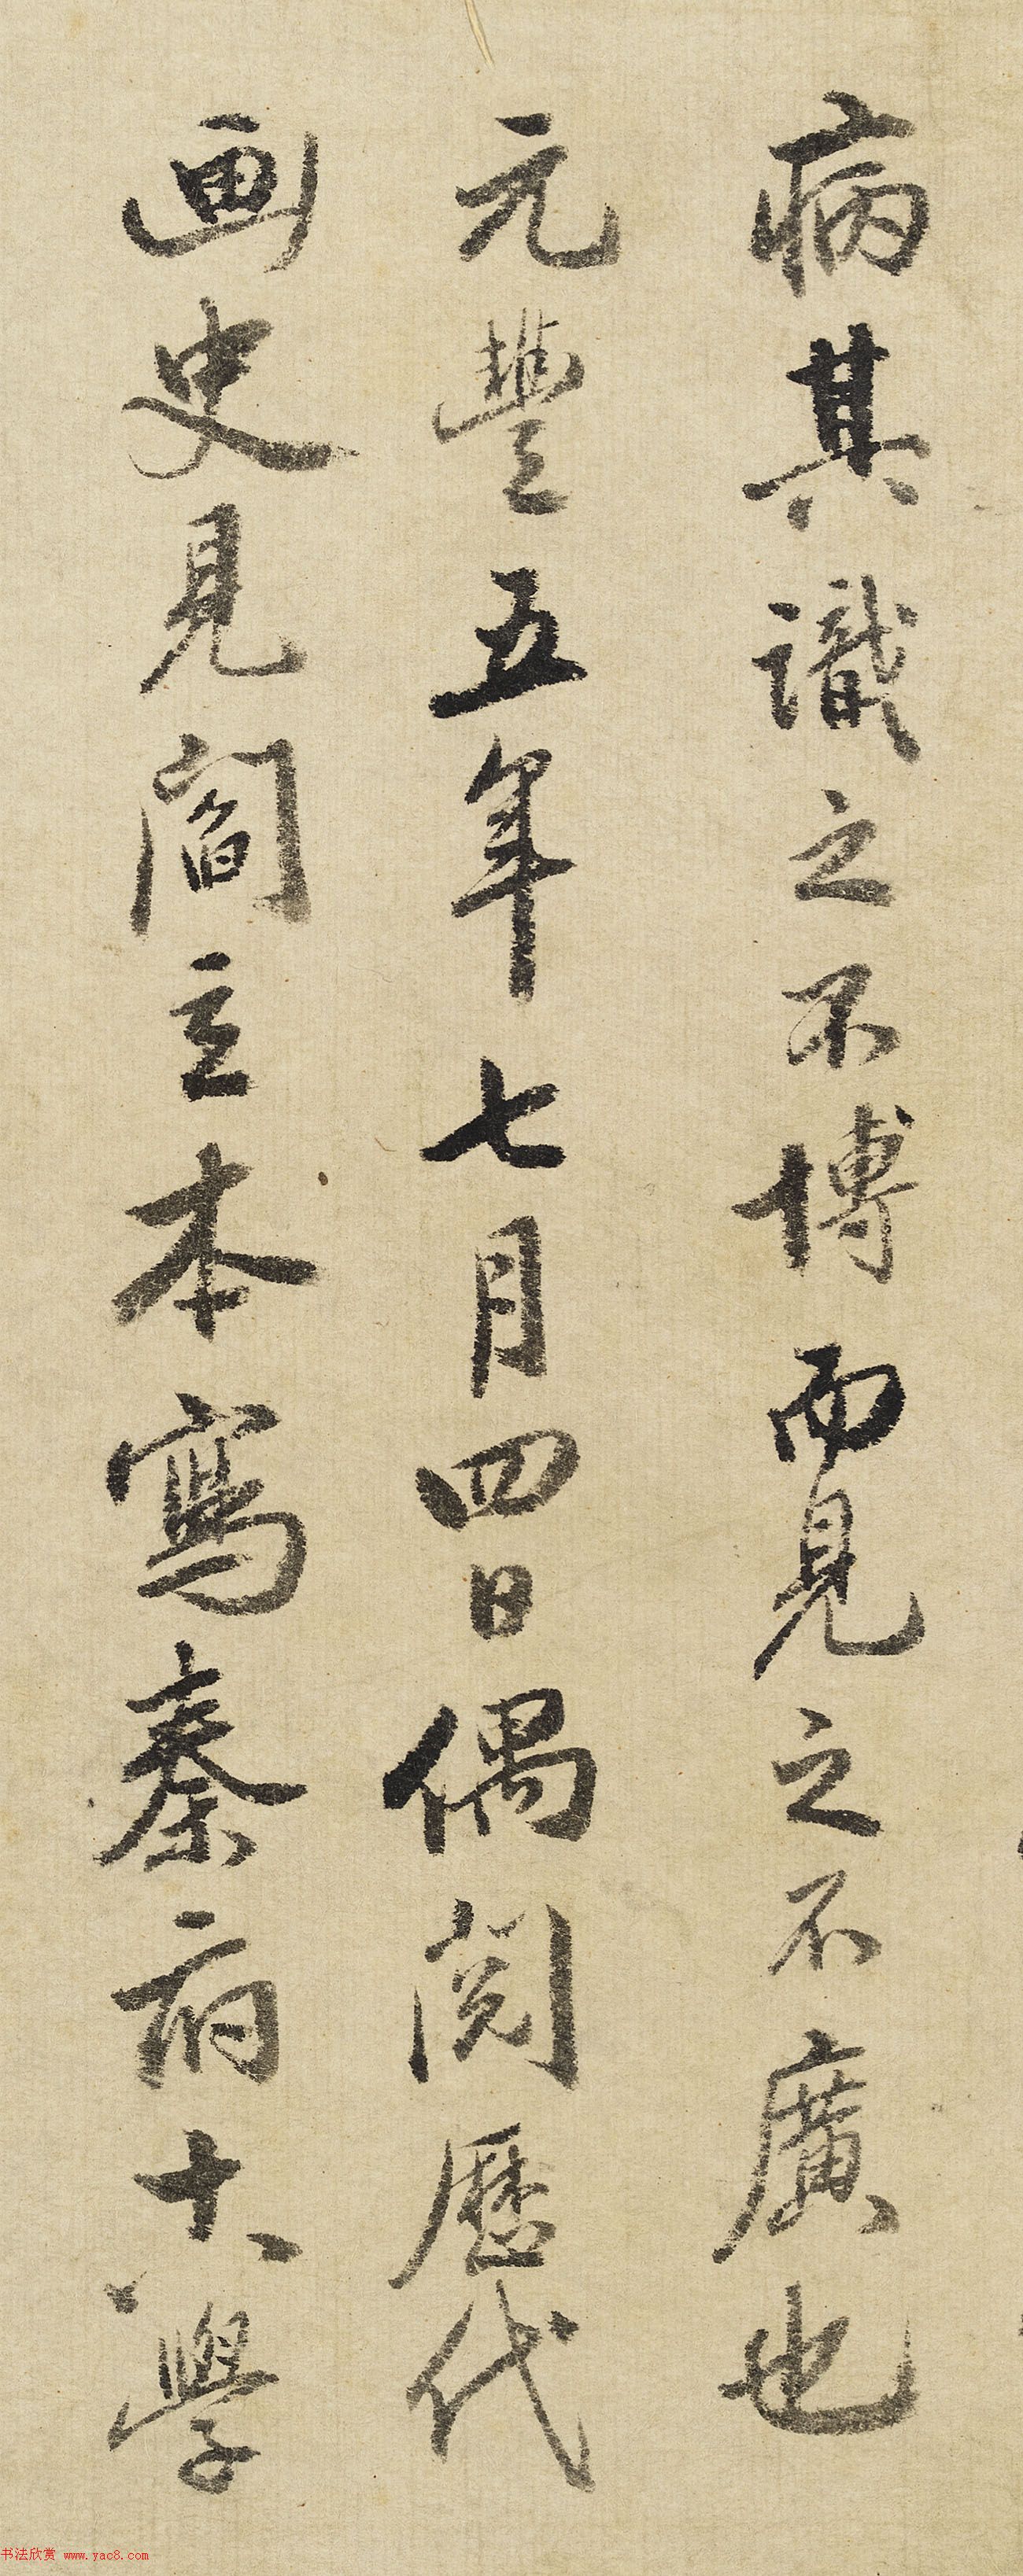 病其識之不博而見之不廣也
元豐五年七月四日偶閱歷代
画史見閻立本寫秦府十八學
书法欣赏 www.yac8.com